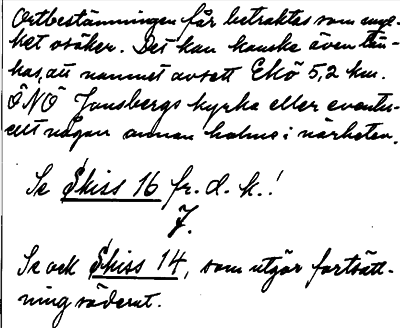 Ortbestämningen får betraktas som myc-
ket osäker. Det kan kanske även tän-
kas, att namnet avsett Ekö 5,2 km.
ÖNÖ Jonsbergs kyrka eller eventu-
ellt någon annan holme i närheten.
Se Skiss 16 fr. d. k.!
J.
Se ock Skiss 14, som utgör fortsätt-
ning söderut.